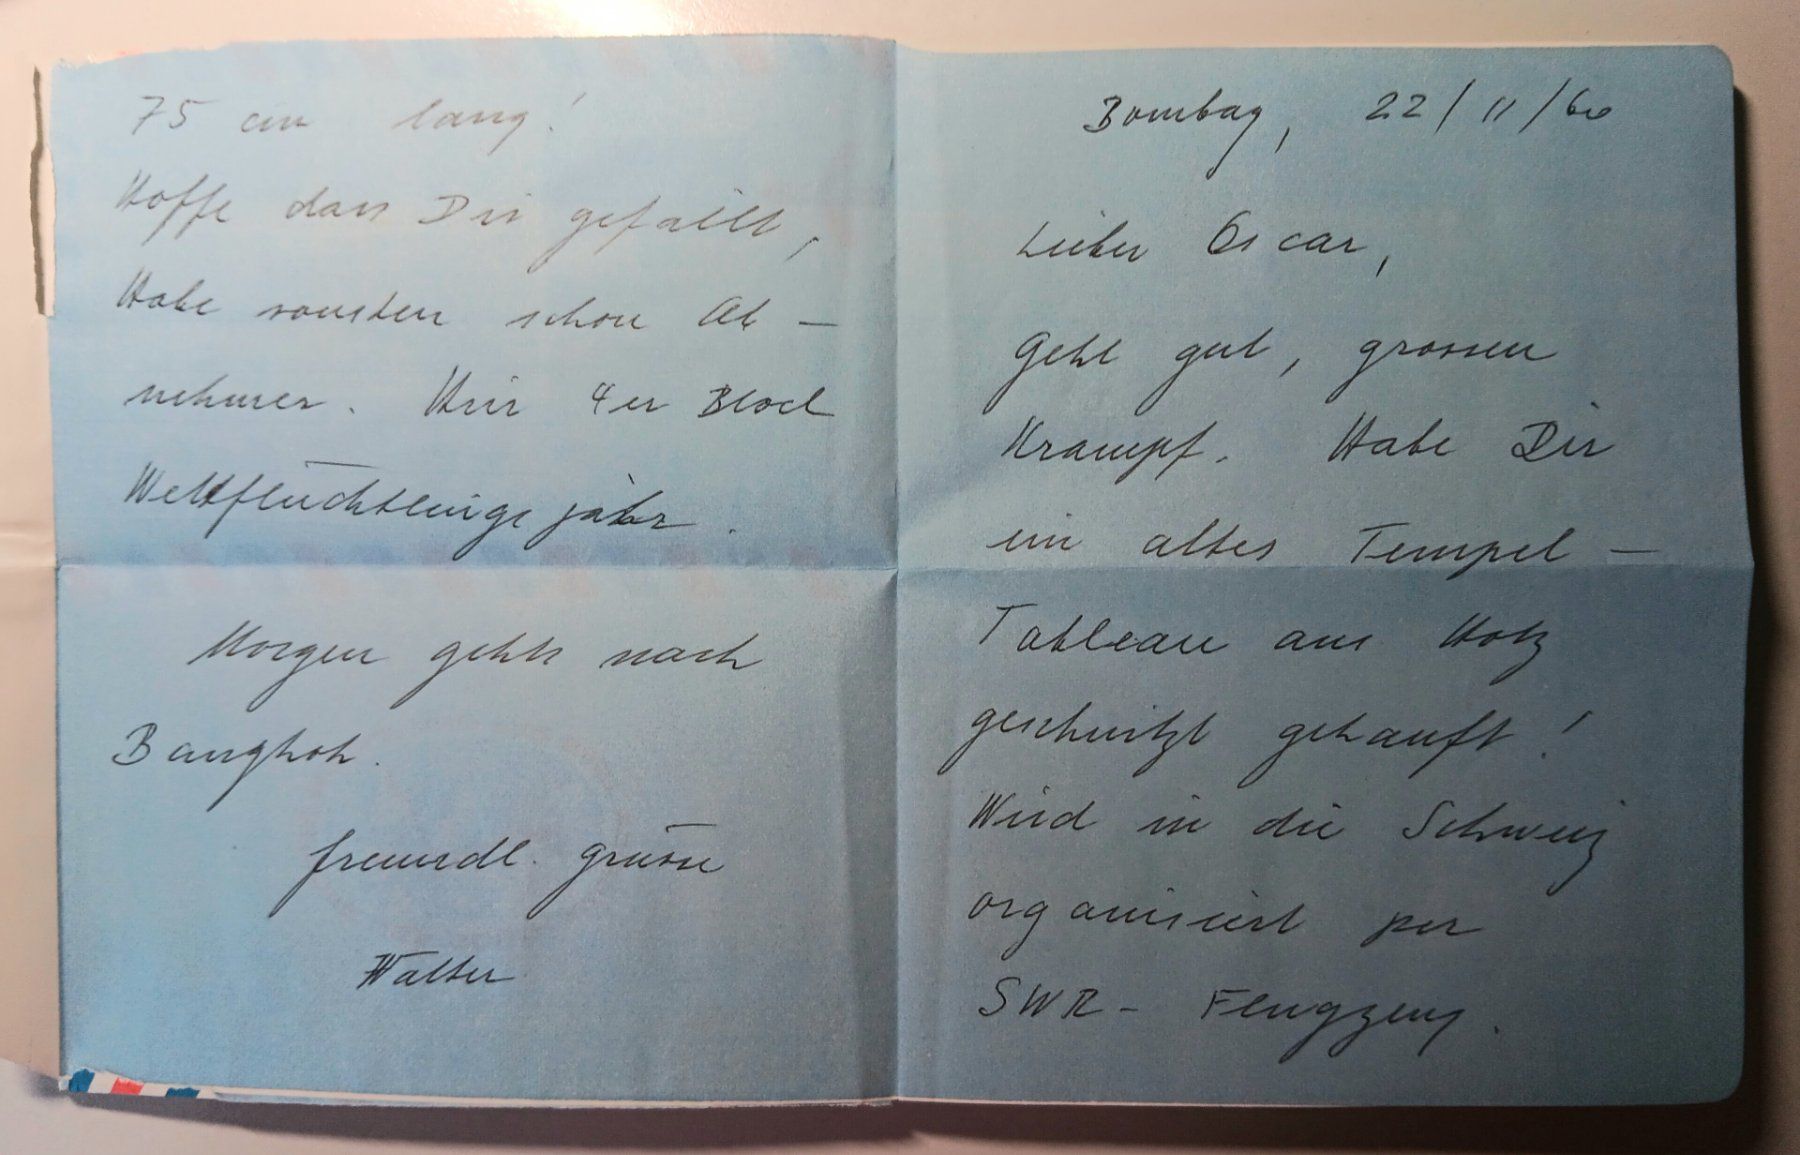 Bombay, 22/11/60
Lieber Oscar,
Geht gut, grossen
Krampf. Habe Dir
ein altes Tempel-
Tableau aus Holz
geschnitzt gekauft!
Wird in die Schweiz
organisiert per
SWR- Flugzeug.
75 cm lang!
Hoffe dass Dir gefällt,
Habe sonsten schon Ab-
nehmer. Hier 4er Block
Weltflüchtlingsjahr.
Morgen gehts nach
Bangkok.
freundl. grüsse
Walter